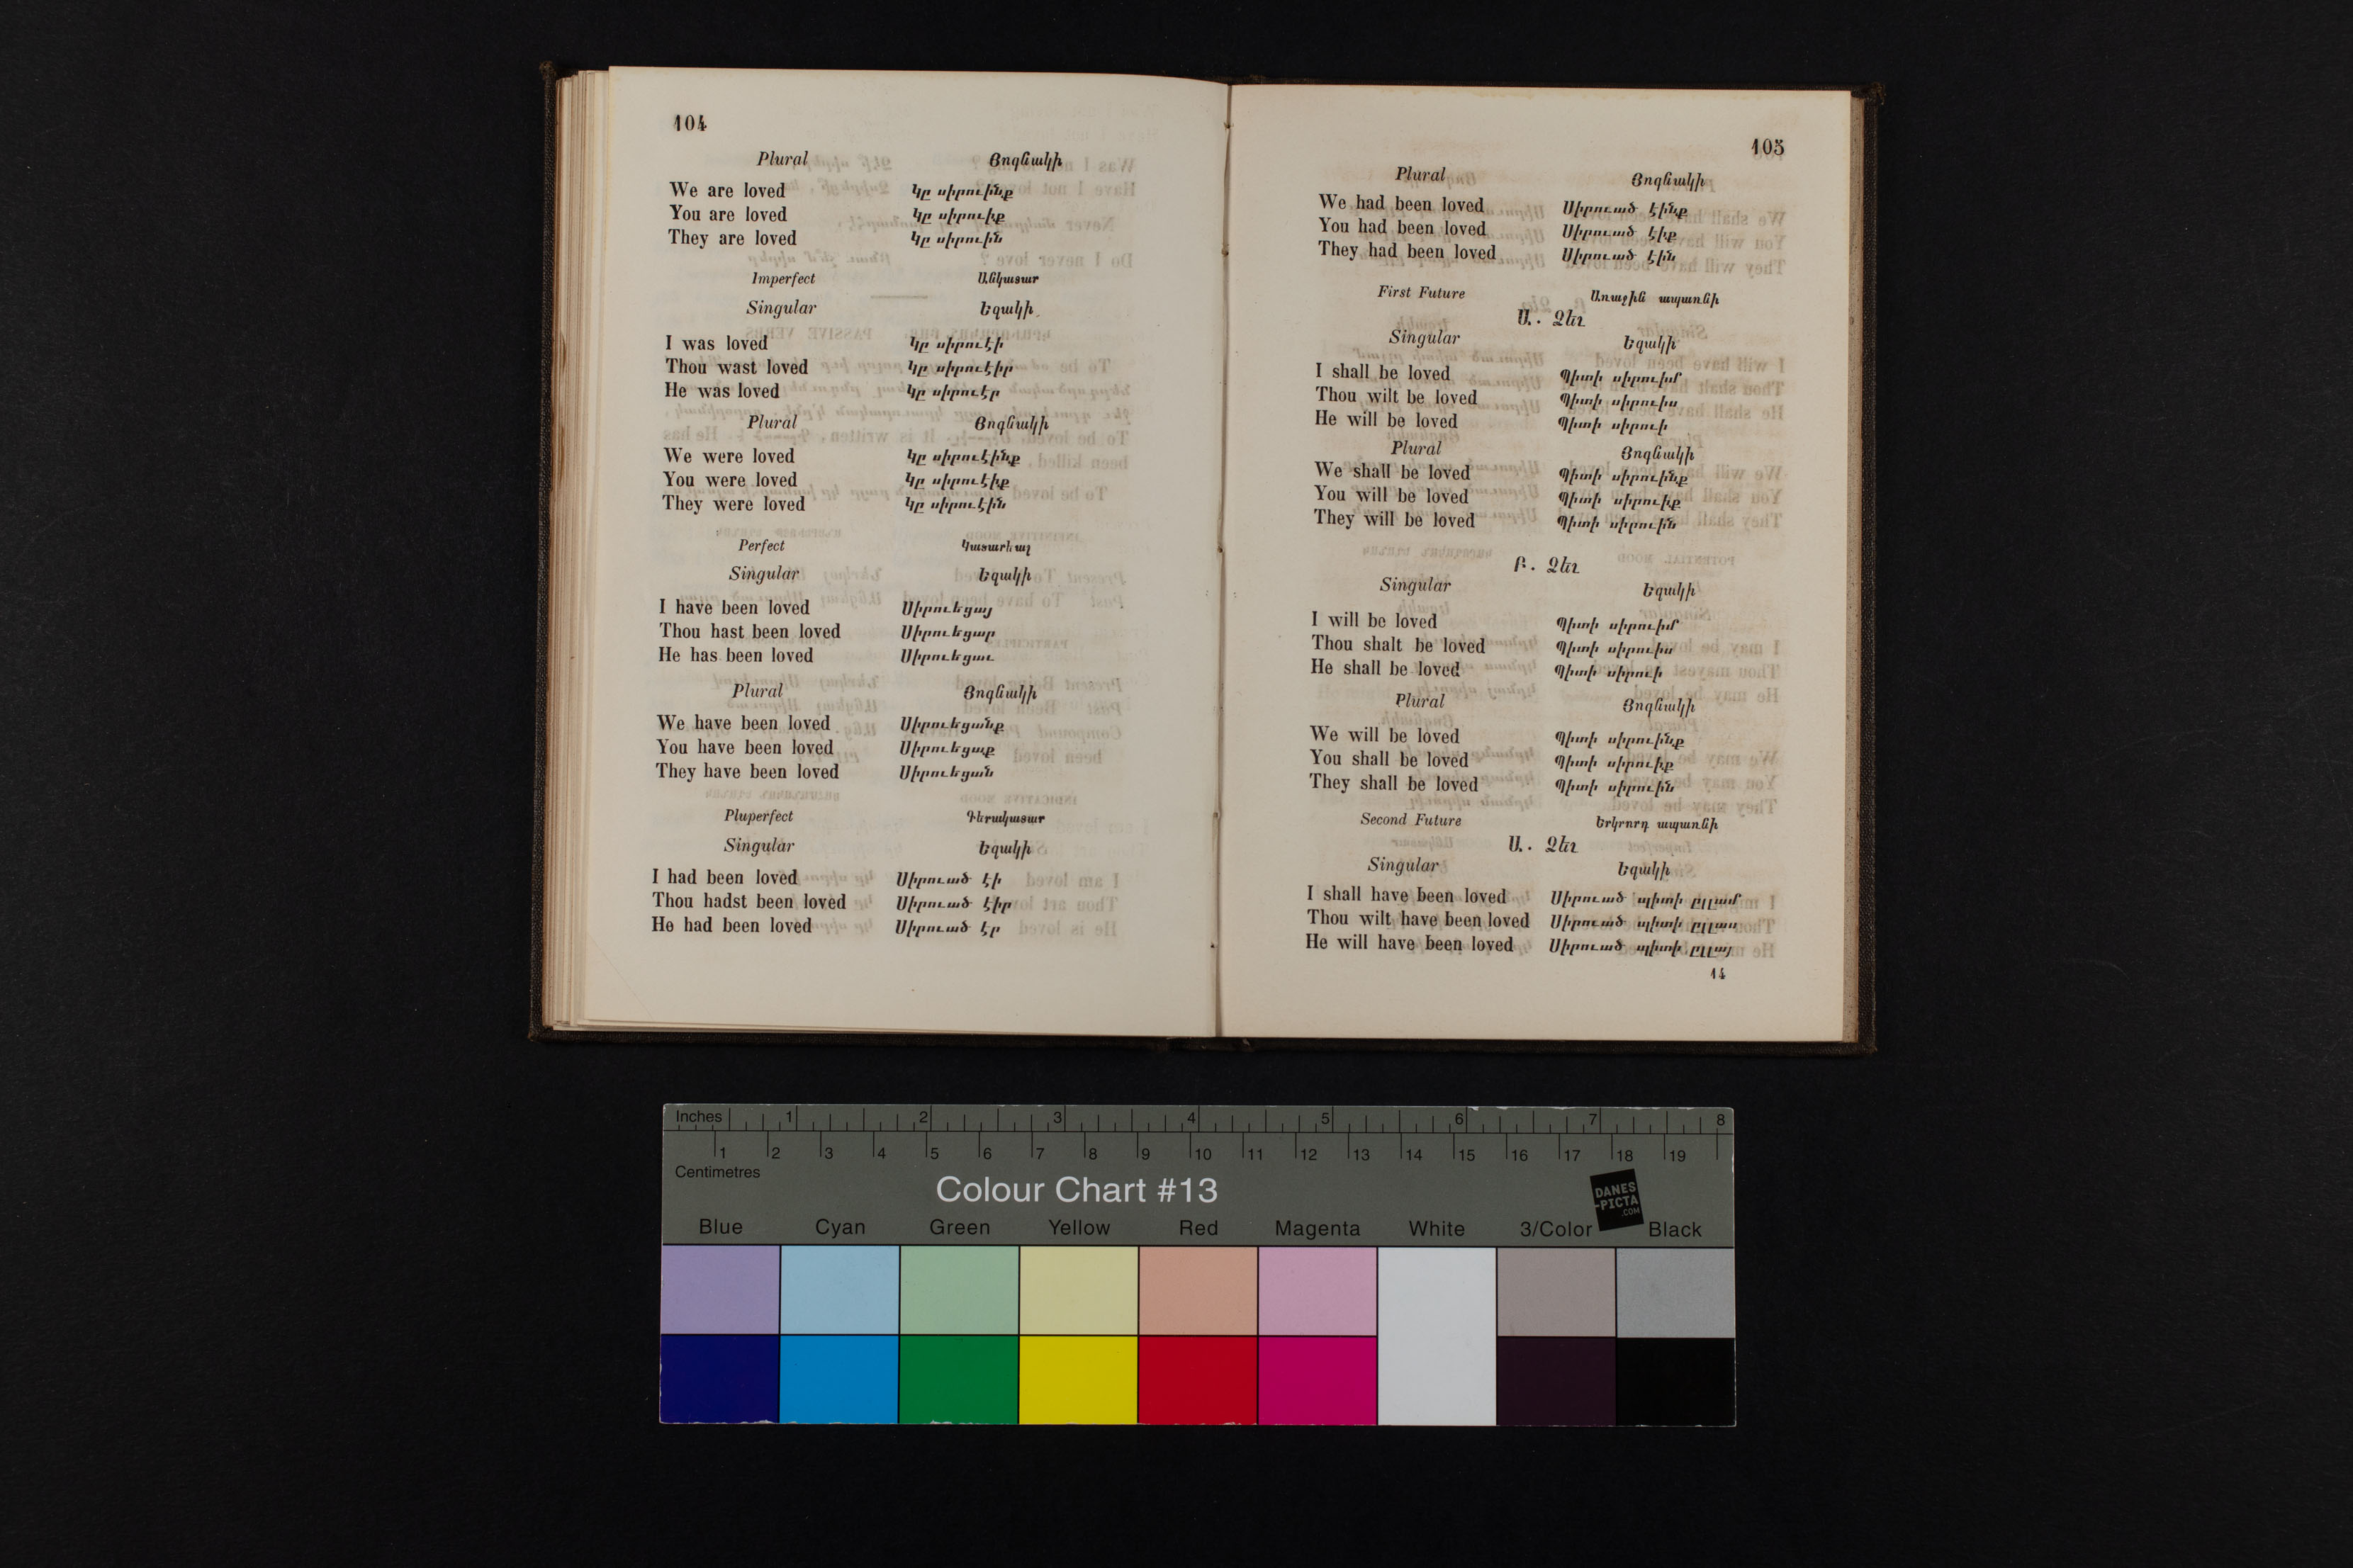 104
Plural Յոգնակի
We are loved Կը սիրուինք
You are loved Կը սիրուիք
They are loved Կը սիրուին
Imperfect Անկատար
Singular Եզակի
I was loved Կը սիրուէի
Thou wast loved Կը սիրուէիր
He was loved Կը սիրուէր
Plural Յոգնակի
We were loved Կը սիրուէինք
You were loved Կը սիրուէիք
They were loved Կը սիրուէին
Perfect Կատարեալ
Singular Եզակի
I have been loved Սիրուեցայ
Thou hast been loved Սիրուեցար
He has been loved Սիրուեցաւ
Plural Յոգնակի
We have been loved Սիրուեցանք
You have been loved Սիրուեցաք
They have been loved Սիրուեցան
Pluperfect Գերակատար
Singular Եզակի
I had been loved Սիրուած էի
Thou hadst been loved Սիրուած էիր
He had been loved Սիրուած էր
105
Plural Յոգնակի
We had been loved Սիրուած էինք
You had been loved Սիրուած էիք
They had been loved Սիրուած էին
First Future Առաջին ապառնի
Ա. Ձեւ
Singular Եզակի
I shall be loved Պիտի սիրուիմ
Thou wilt be loved Պիտի սիրուիս
He will be loved Պիտի սիրուի
Plural Յոգնակի
We shall be loved Պիտի սիրուինք
You will be loved Պիտի սիրուիք
They will be loved Պիտի սիրուին
Բ. Ձեւ
Singular Եզակի
I will be loved Պիտի սիրուիմ
Thou shalt be loved Պիտի սիրուիս
He shall be loved Պիտի սիրուի
Plural Յոգնակի
We will be loved Պիտի սիրուինք
You shall be loved Պիտի սիրուիք
They shall be loved Պիտի սիրուին
Second Future Երկրորդ ապառնի
Ա. Ձեւ
Singular Եզակի
I shall have been loved Սիրուած պիտի ըլլամ
Thou wilt have been loved Սիրուած պիտի ըլլաս
He will have been loved Սիրուած պիտի ըլլայ
14
Inches 1 2 3 4 5 6 7 8
1 2 3 4 5 6 7 8 9 10 11 12 13 14 15 16 17 18 19
Centimetres
Colour Chart #13
DANES
-PICTA
.COM
Blue Cyan Green Yellow Red Magenta White 3/Color Black